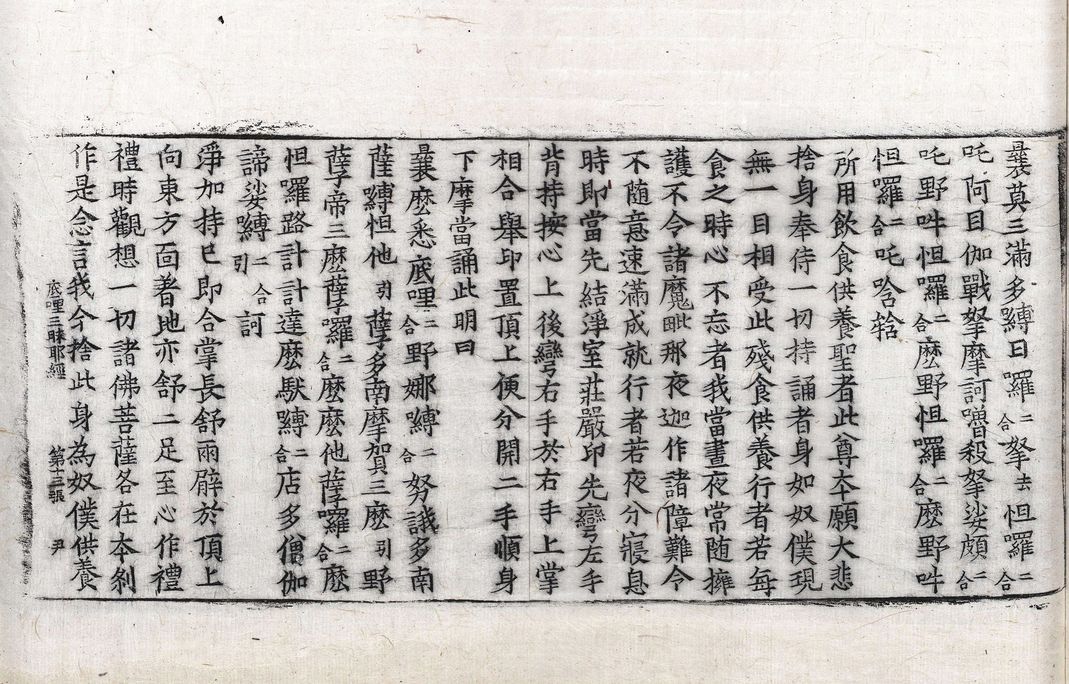 曩莫三滿多縛日囉二合拏去怛囉二合
吒阿目伽戰拏摩訶嚕殺拏娑頗二合
吒野吽怛囉二合麽野怛囉二合麽野吽
怛囉二合吒唅
所用飲食供養聖者此尊夲願大悲
捨身奉侍一切持誦者身如奴僕現
無一目相受此殘食供養行者若每
食之時心不忘者我當晝夜常随擁
護不令諸魔毗那夜迦作諸障難令
不随意速滿成就行者若夜分寢息
時即當先結淨室莊嚴印先彎左手
背持按心上後彎右手於右手上掌
相合舉印置頂上便分開二手順身
下摩當誦此明曰
曩麽悉底哩二合野娜縛二合努誐多南
薩縛怛他引孽多南摩賀三麽引野
孽帝三麽孽囉二合麽麽他孽囉二合麽
怛囉路計計達麽馱縛二合店多僧伽
諦娑縛二合引訶
淨加持已即合掌長舒兩臂於頂上
向東方面著地亦舒二足至心作禮
禮時觀想一切諸佛菩薩各在夲刹
作是念言我今捨此身為奴僕供養
底哩三昧耶經 第十三張 尹